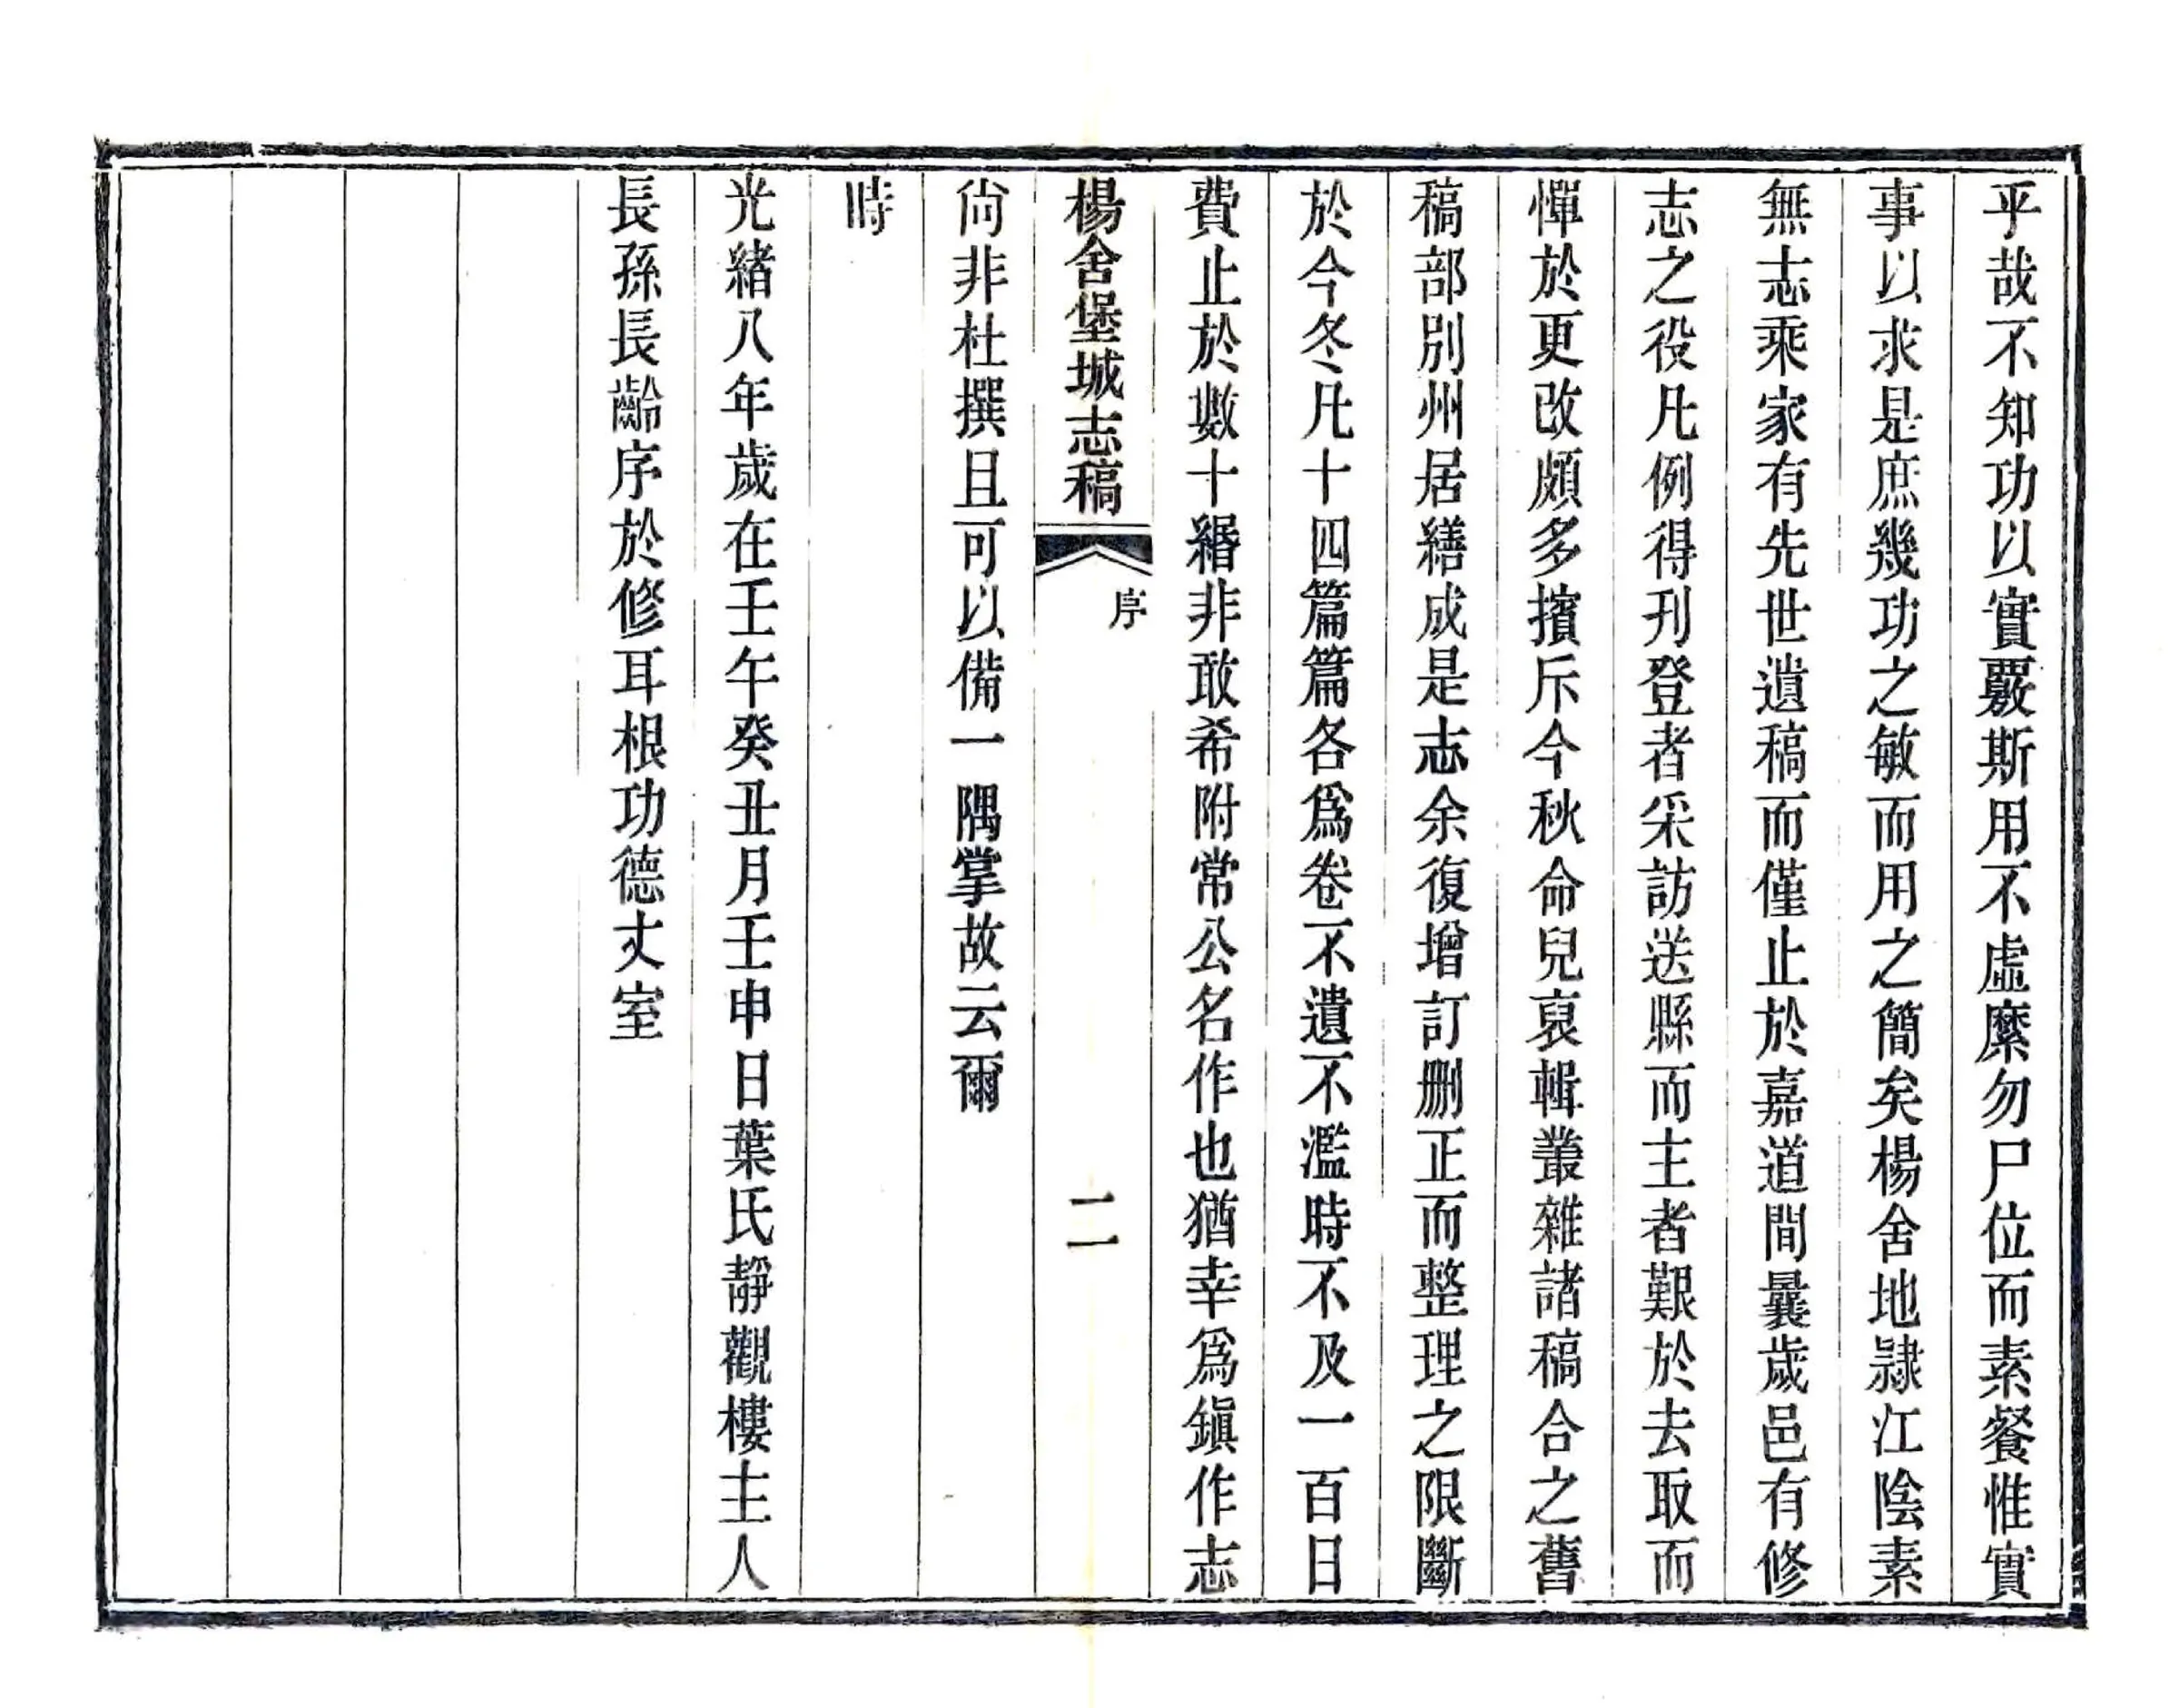 乎哉不知功以實覈斯用不虛縻勿尸位而素餐惟實
事以求是庶幾功之敏而用之簡矣楊舍地隷江陰素
無志乘家有先世遺稿而僅止於嘉道間曩歲邑有修
志之役凡例得刋登者采訪送縣而主者艱於去取而
憚於更改頗多擯斥今秋命兒裒輯叢雜諸稿合之舊
稿部別州居繕成是志余復增訂刪正而整理之限斷
於今冬凡十四篇篇各爲卷不遺不濫時不及一百日
費止於數十緡非敢希附常公名作也猶幸爲鎭作志
楊舍堡城志稿 序 二
尙非杜撰且可以備一隅掌故云爾
時
光緒八年歲在壬午癸丑月壬申日葉氏靜觀樓主人
長孫長齡序於修耳根功德丈室